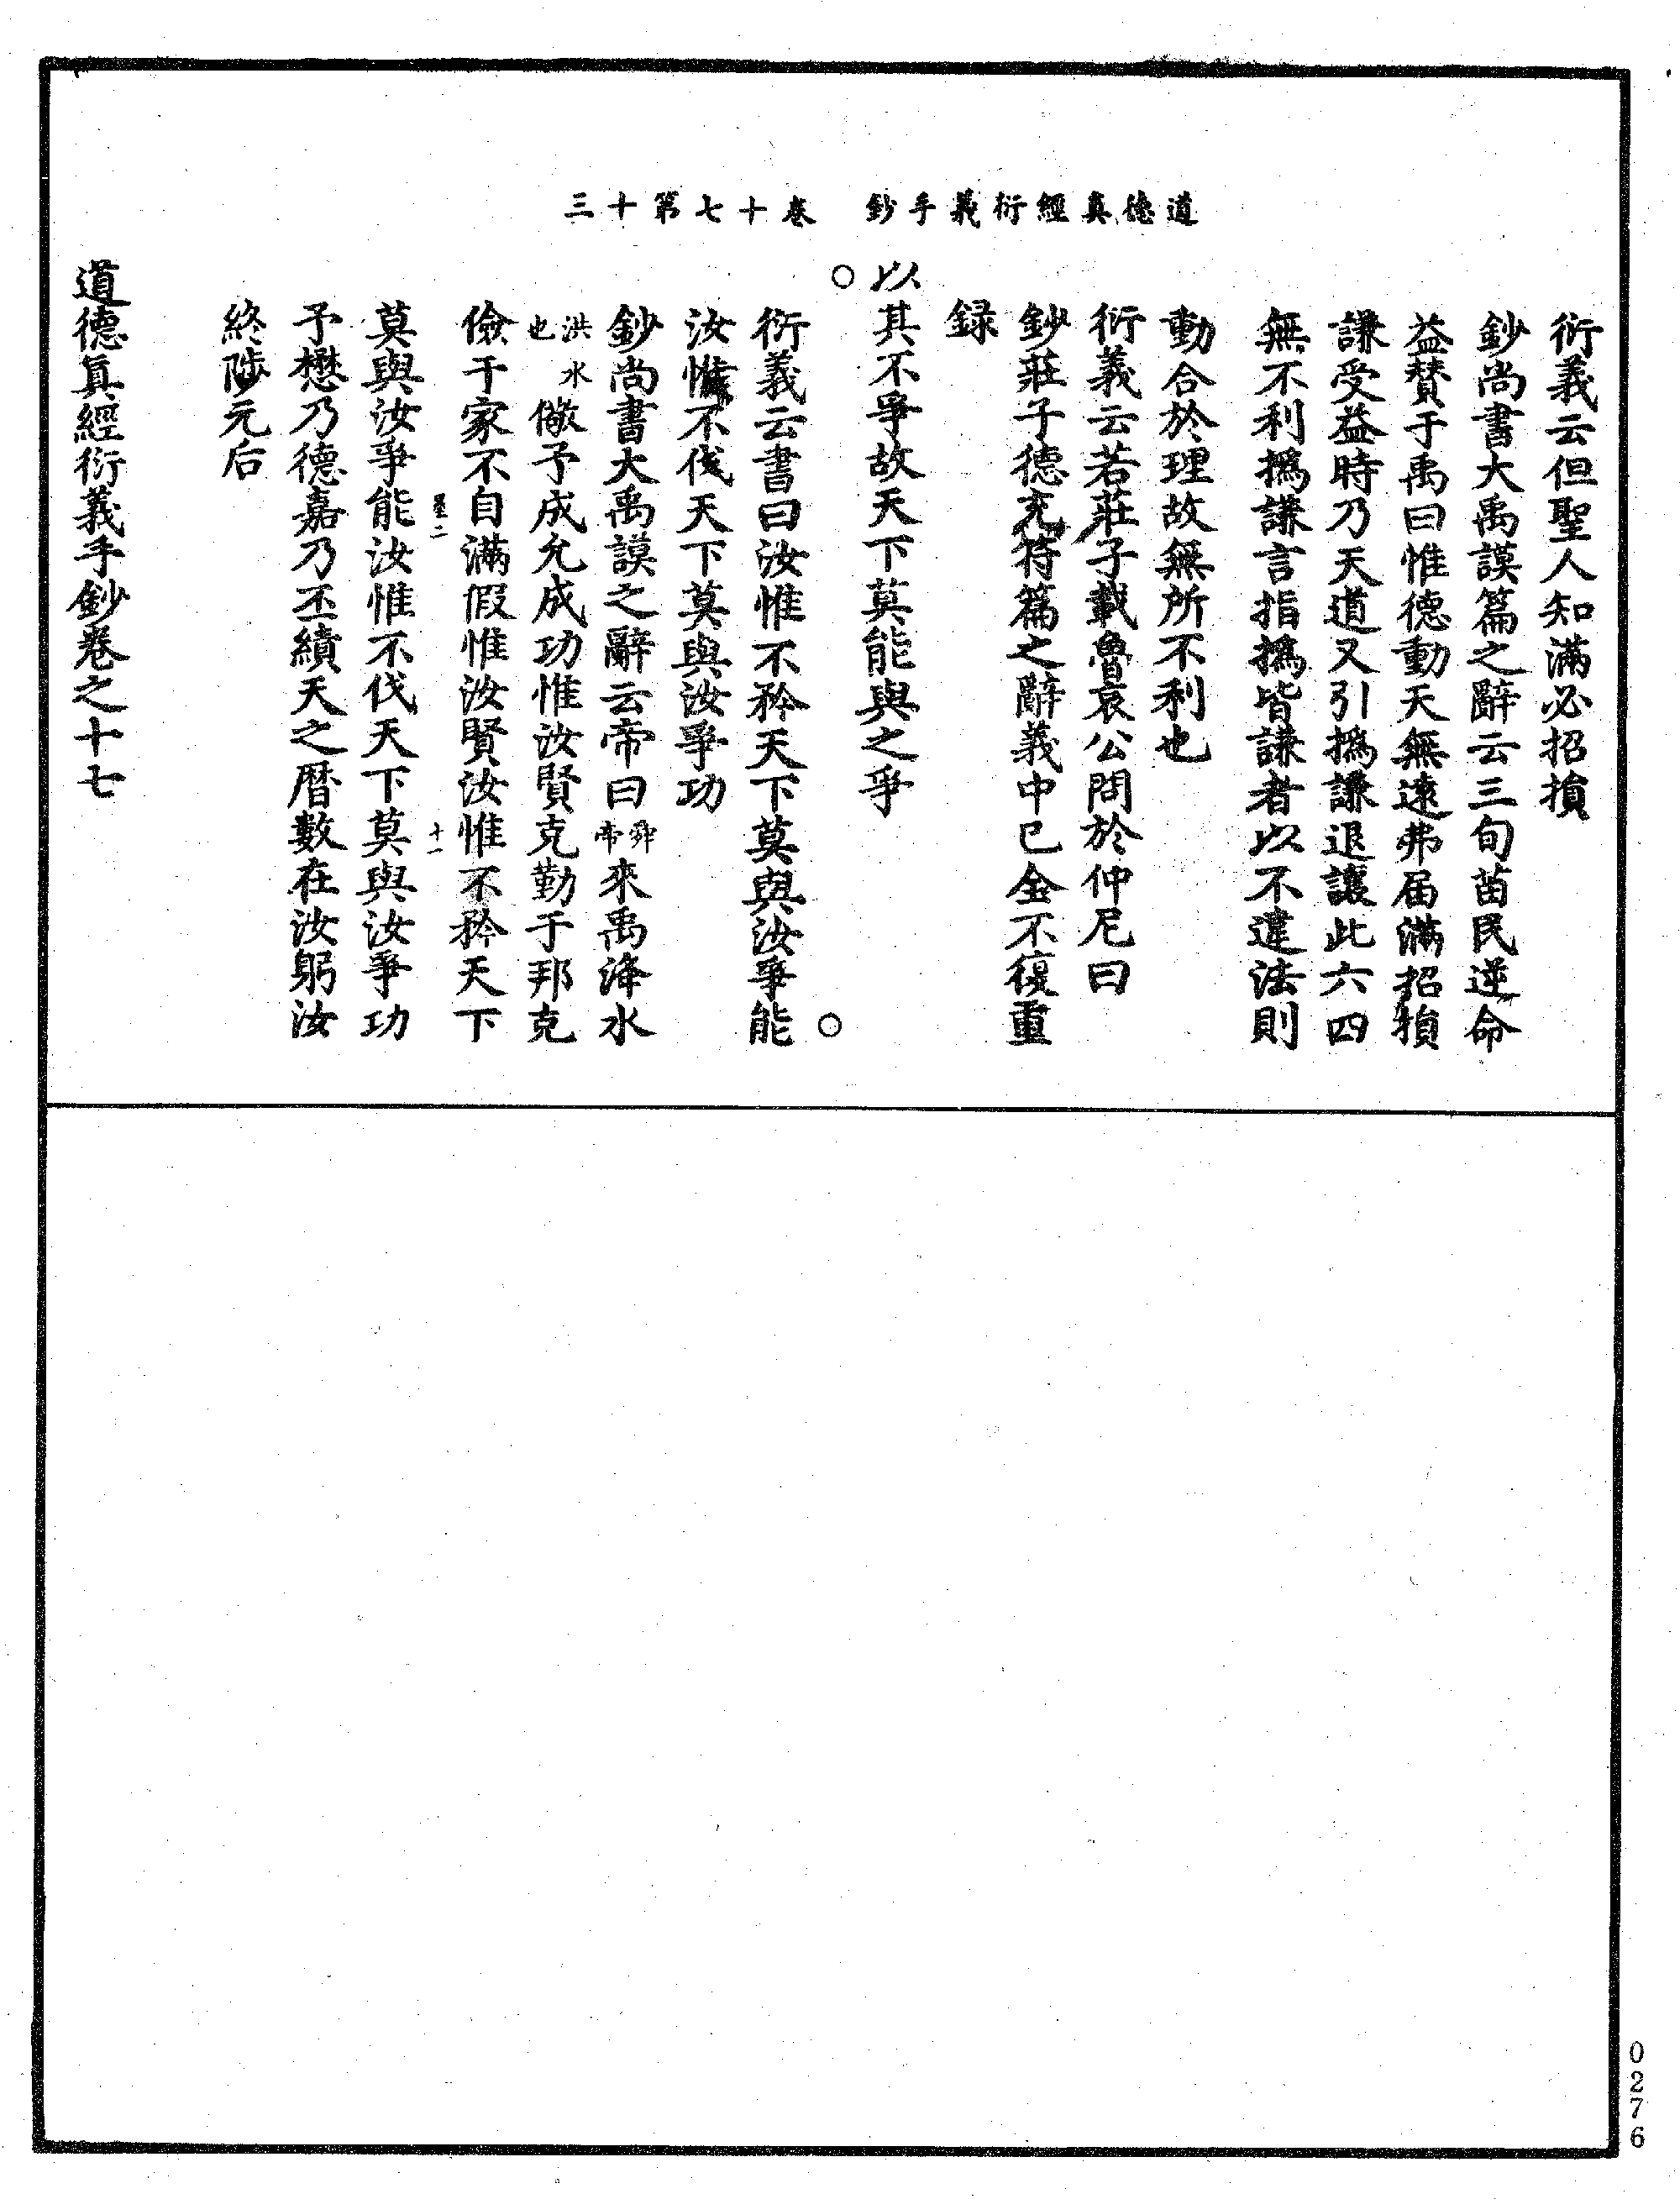 道德真經衍義手鈔　卷十七第十三
衍義云但聖人知滿必招損
鈔尚書大禹謨篇之辭云三旬苗民逆命
益賛于禹曰惟德動天無遠弗届滿招損
謙受益時乃天道又引撝謙退讓此六四
無不利撝謙言指撝皆謙者以不違法則
動合於理故無所不利也
衍義云若莊子載魯哀公問於仲尼曰
鈔莊子德充符篇之辭義中已全不復重
録
以其不爭故天下莫能與之爭
衍義云書曰汝惟不矜天下莫與汝爭能
汝惟不伐天下莫與汝爭功
鈔尚書大禹謨之辭云帝曰舜帝來禹洚水
洪水也儆予成允成功惟汝賢克勤于邦克
儉于家不自滿假惟汝賢汝惟不矜天下
十一
莫與汝爭能汝惟不伐天下莫與汝爭功
予懋乃德嘉乃丕績天之曆數在汝躬汝
終陟元后
道德真經衍義手鈔卷之十七
0276